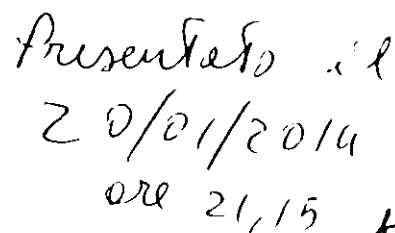 Presentato il
20/01/2014
ore 21,15